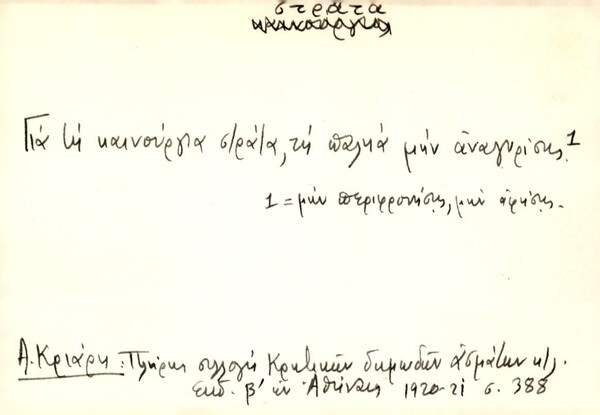 στράτα
Γιά τή καινούργια στράτα, τή παληά μήν ἀναγυρίσῃς 1
1 = μήν περιφρονήσῃς, μήν ἀφήσῃς.
Α. Κριάρη: Πλήρης συλλογή Κρητικῶν δημωδῶν ᾀσμάτων κτλ.
ἔκδ. β' ἐν Ἀθήναις 1920-21 σ. 388